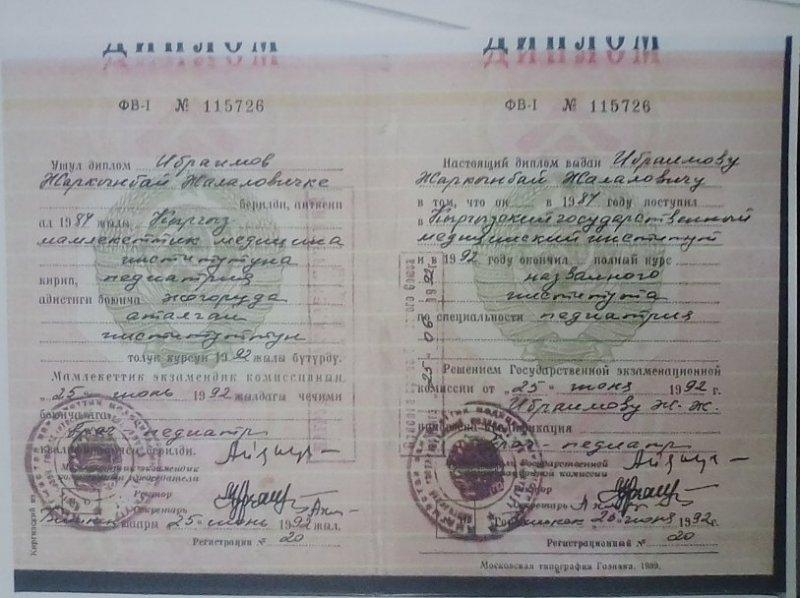 ДИПЛОМ
ФВ-I № 115726
Ушул диплом Ибраимов
Жаркынбай Жалаловичке
берилди, анткени
ал 1984 жылы Кыргыз
мамлекеттик медицина
институтуна
кирип, педиатрия
адистиги боюнча жогоруда
аталган
институттун
толук курсун 1992 жылы бүтүрдү.
Мамлекеттик экзамендик комиссиянын
"25" июнь 1992 жылдагы чечими
боюнча
врач педиатр
квалификациясы берилди.
Мамлекеттик экзамендик
Ректор
Секретарь
шаары 25 июнь 1992 жыл.
Регистрации № 20
ДИПЛОМ
ФВ-I № 115726
Настоящий диплом выдан Ибраимову
Жаркынбай Жалаловичу
в том, что он в 1984 году поступил
в Кыргызский государственный
медицинский институт
и в 1992 году окончил полный курс
названного
института
по специальности педиатрия
Решением Государственной экзаменационной
комиссии от "25" июня 1992 г.
Ибраимову Ж. Ж.
присвоена квалификация
врач-педиатр
Государственной
комиссии
Секретарь
Город Бишкек 26 июня 1992 г.
Регистрационный № 20
Московская типография Гознака. 1989.